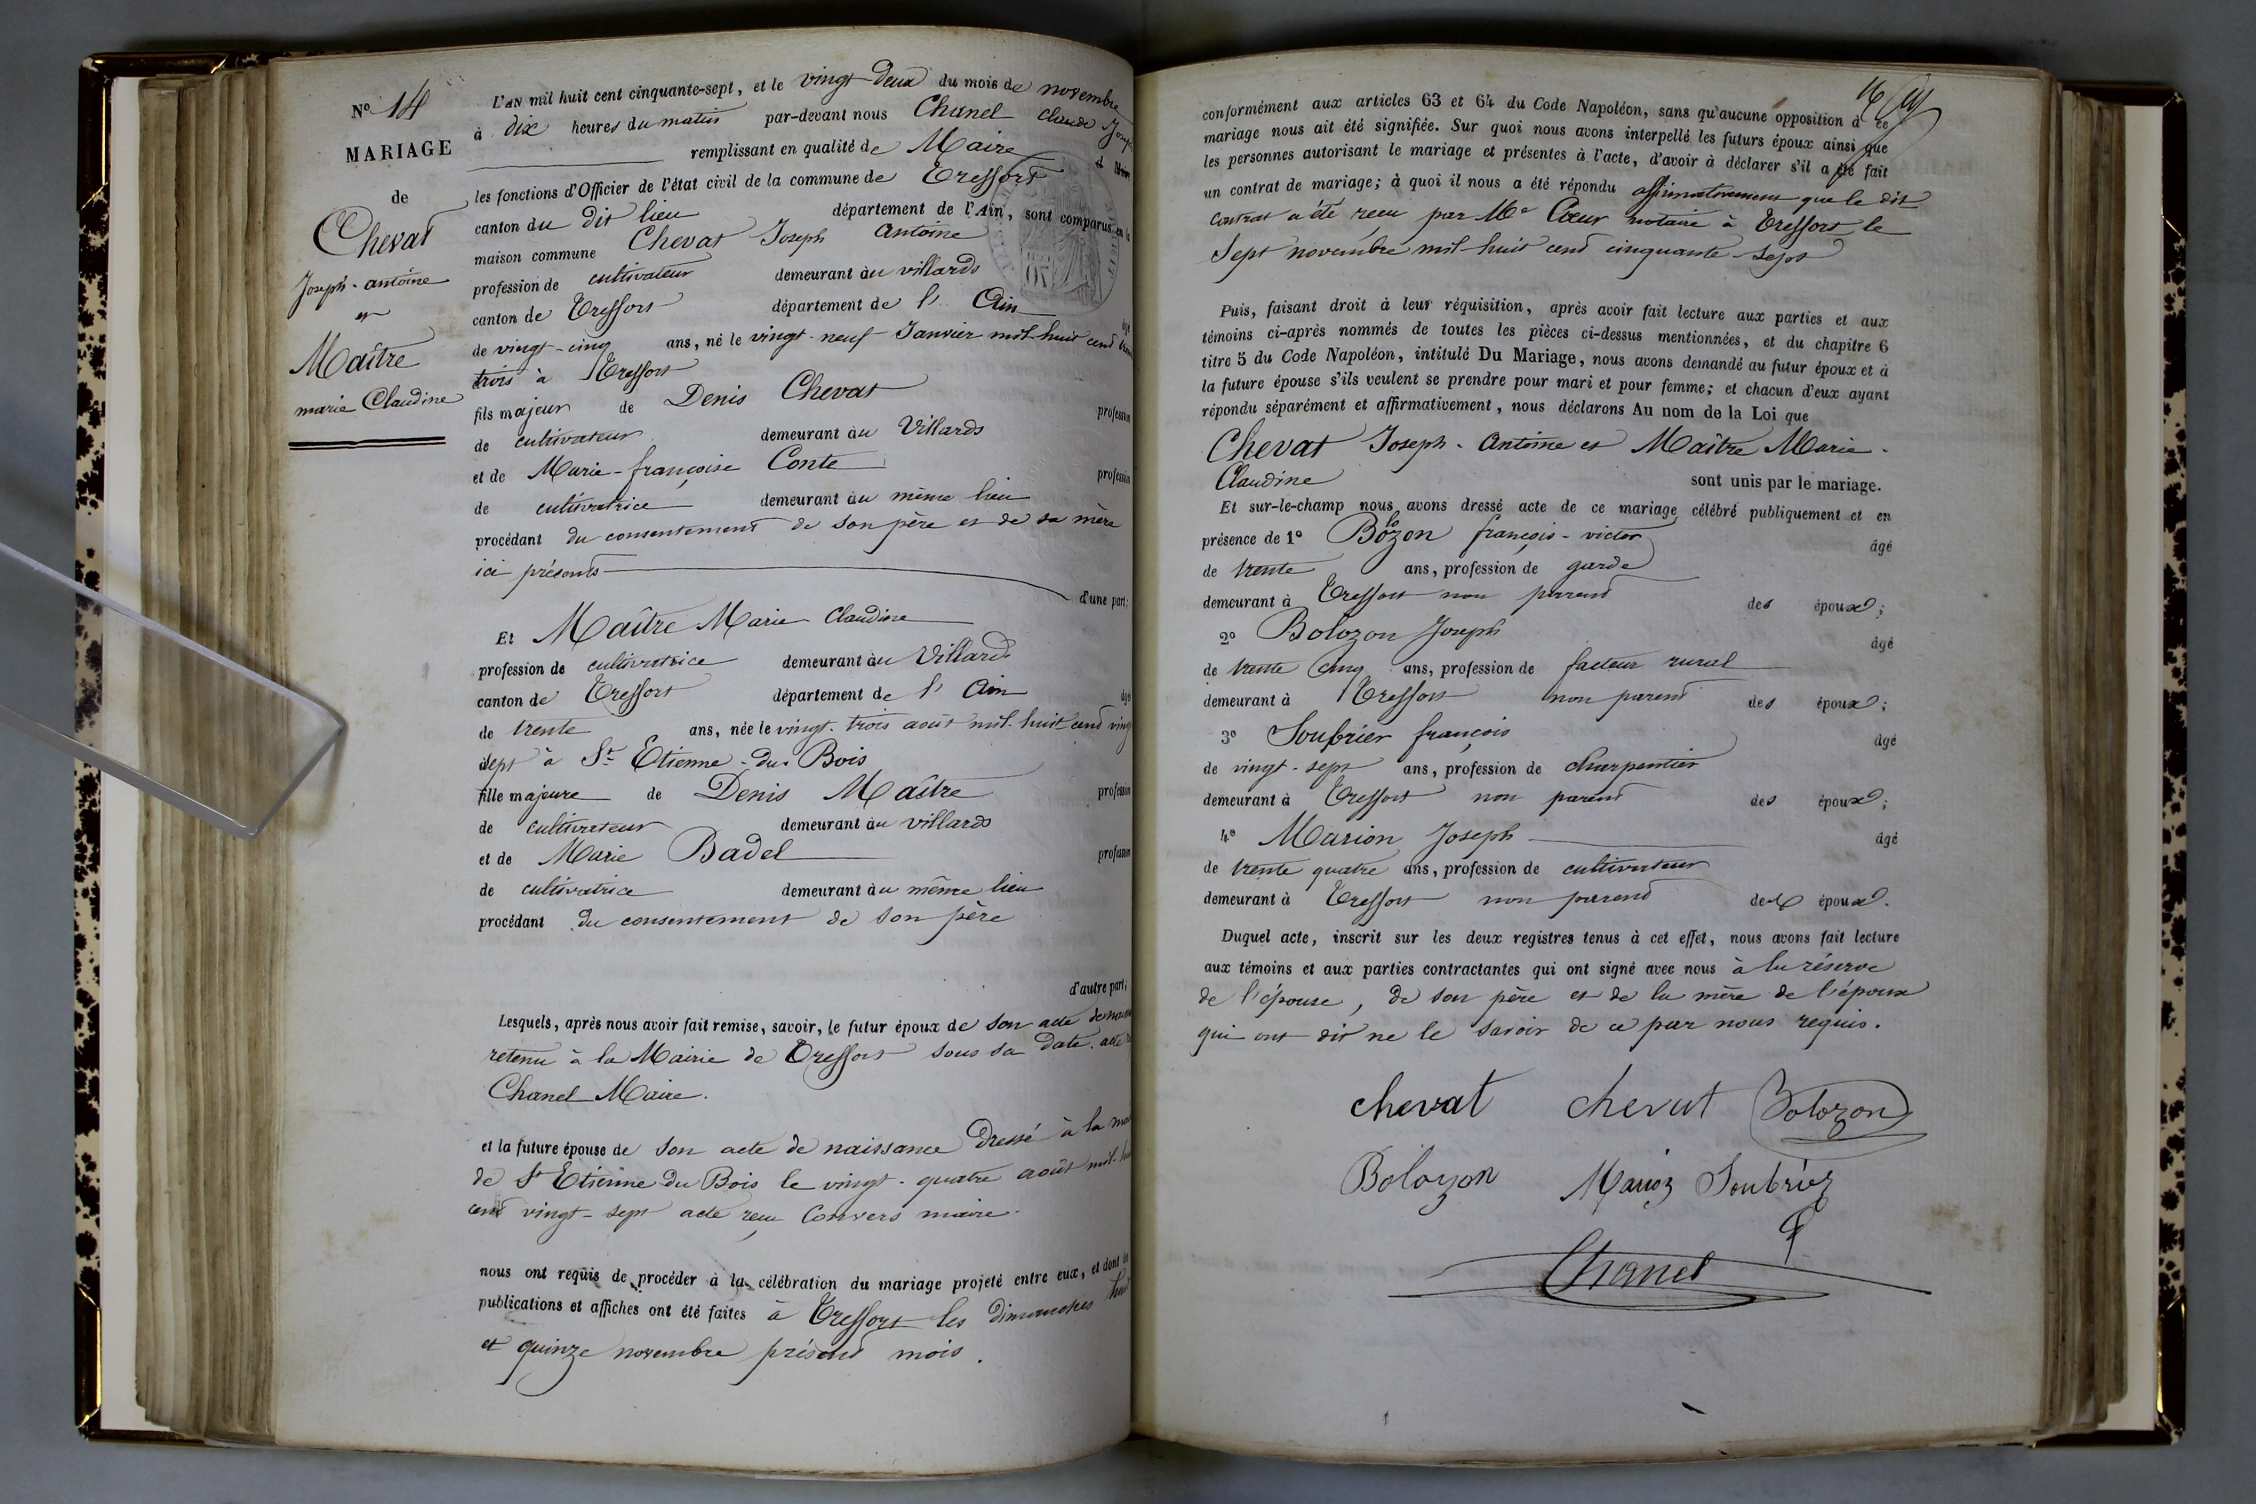 Nº 14
MARIAGE
de
Chevat
Joseph-antoine
et
Maître
marie Claudine
L'AN mil huit cent cinquante-sept, et le vingt deux du mois de novembre
à dix heures du matin par-devant nous Chanel claude Joseph
remplissant en qualité de Maire
les fonctions d'Officier de l'état civil de la commune de Treffort
canton du dit lieu département de l'Ain, sont comparus en la
maison commune Chevat Joseph Antoine
profession de cultivateur demeurant au villards
canton de Treffort département de l' Ain âgé
de vingt-cinq ans, né le vingt-neuf Janvier mil-huit cend
trois à Treffort
fils majeur de Denis Chevat profession
de cultivateur demeurant au Villards
et de Marie-françoise Conte profession
de cultivatrice demeurant au même lieu
procédant du consentement de son père et de sa mère
ici présents d'une part;
Et Maître Marie Claudine
profession de cultivatrice demeurant au Villards
canton de Treffort département de l' Ain âgée
de trente ans, née le vingt-trois août mil-huit cend vingt
sept à St Etienne-du-Bois
fille majeure de Denis Maître profession
de cultivateur demeurant au villards
et de Marie Badel profession
de cultivatrice demeurant au même lieu
procédant du consentement de son père
d'autre part;
Lesquels, après nous avoir fait remise, savoir, le futur époux de son acte de
retenu à la Mairie de Treffort sous sa date. acte
Chanel Maire.
et la future épouse de son acte de naissance dressé à la
de St Etienne du Bois le vingt-quatre août mil-
cend vingt-sept acte reçu Convers maire.
nous ont requis de procéder à la célébration du mariage projeté entre eux, et dont les
publications et affiches ont été faites à Treffort les dimanches huit
et quinze novembre présend mois.
conformément aux articles 63 et 64 du Code Napoléon, sans qu'aucune opposition à ce
mariage nous ait été signifiée. Sur quoi nous avons interpellé les futurs époux ainsi que
les personnes autorisant le mariage et présentes à l'acte, d'avoir à déclarer s'il a été fait
un contrat de mariage; à quoi il nous a été répondu affirmativement que le dit
contrat a été reçu par Me Cœur notaire à Treffort le
Sept novembre mil-huit cend cinquante-sept
Puis, faisant droit à leur réquisition, après avoir fait lecture aux parties et aux
témoins ci-après nommés de toutes les pièces ci-dessus mentionnées, et du chapitre 6
titre 5 du Code Napoléon, intitulé Du Mariage, nous avons demandé au futur époux et à
la future épouse s'ils veulent se prendre pour mari et pour femme; et chacun d'eux ayant
répondu séparément et affirmativement, nous déclarons Au nom de la Loi que
Chevat Joseph-Antoine et Maître Marie-
Claudine sont unis par le mariage.
Et sur-le-champ nous avons dressé acte de ce mariage célébré publiquement et en
présence de 1º Bolozon françois-victor âgé
de trente ans, profession de garde
demeurant à Treffort non parend des époux;
2º Bolozon Joseph âgé
de trente cinq ans, profession de facteur rural
demeurant à Treffort non parend des époux;
3º Soubrier françois âgé
de vingt-sept ans, profession de charpentier
demeurant à Treffort non parend des époux;
4º Marion Joseph âgé
de trente quatre ans, profession de cultivateur
demeurant à Treffort non parend des époux.
Duquel acte, inscrit sur les deux registres tenus à cet effet, nous avons fait lecture
aux témoins et aux parties contractantes qui ont signé avec nous à la réserve
de l'épouse, de son père et de la mère de l'époux
qui ont dit ne le savoir de ce par nous requis.
chevat chevat Bolozon
Bolozon Marion Soubrier
Chanel